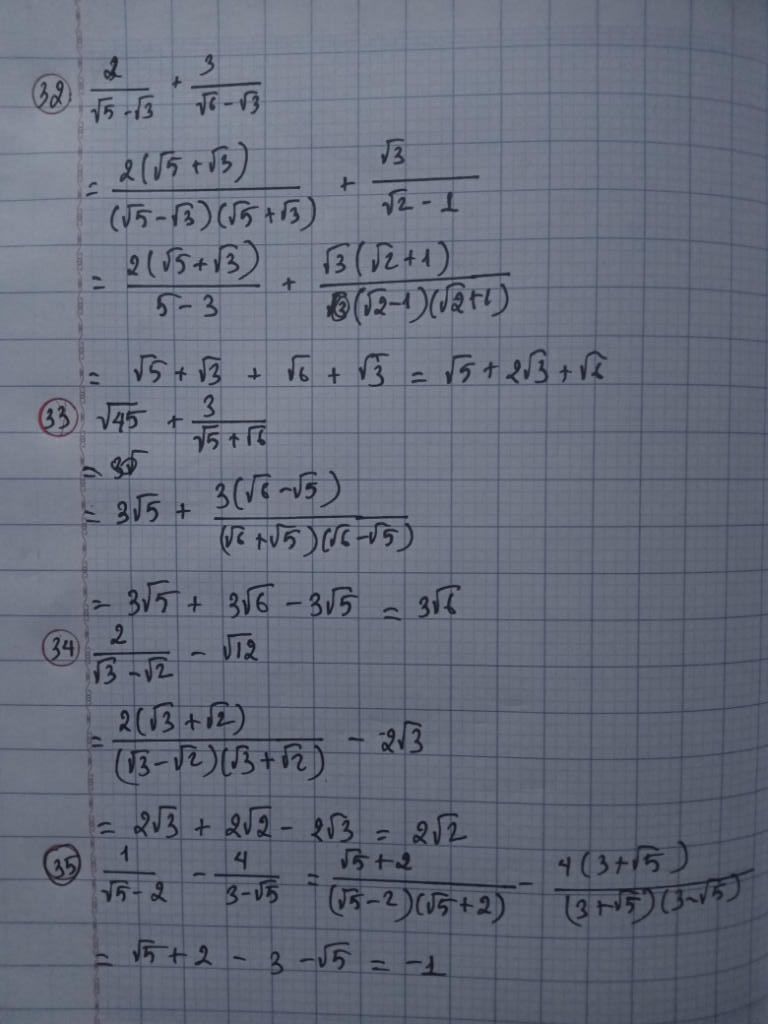 32 2/(√5 - √3) + 3/(√6 - √3)
= 2(√5 + √3)/((√5 - √3)(√5 + √3)) + √3/(√2 - 1)
= 2(√5 + √3)/(5 - 3) + √3(√2 + 1)/((√2 - 1)(√2 + 1))
= √5 + √3 + √6 + √3 = √5 + 2√3 + √6
33 √45 + 3/(√5 + √6)
= 3√5 + 3(√6 - √5)/((√6 + √5)(√6 - √5))
= 3√5 + 3√6 - 3√5 = 3√6
34 2/(√3 - √2) - √12
= 2(√3 + √2)/((√3 - √2)(√3 + √2)) - 2√3
= 2√3 + 2√2 - 2√3 = 2√2
35 1/(√5 - 2) - 4/(3 - √5) = (√5 + 2)/((√5 - 2)(√5 + 2)) - 4(3 + √5)/((3 + √5)(3 - √5))
= √5 + 2 - 3 - √5 = -1